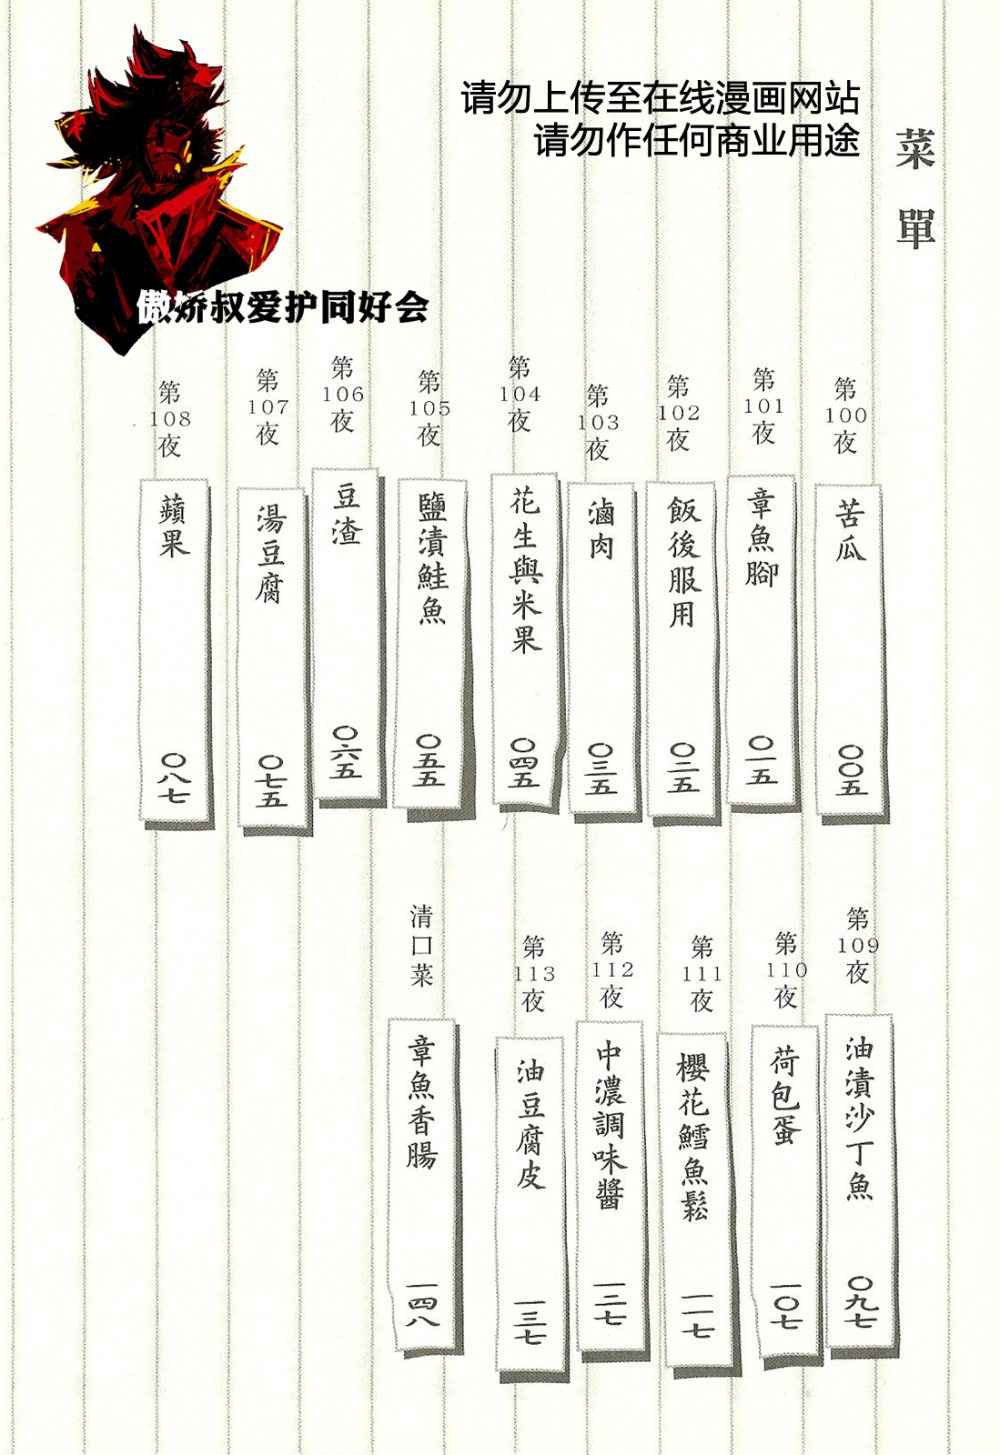 请勿上传至在线漫画网站
请勿作任何商业用途
菜單
傲娇叔爱护同好会
第100夜
苦瓜
〇〇五
第101夜
章魚腳
〇一五
第102夜
飯後服用
〇二五
第103夜
滷肉
〇三五
第104夜
花生與米果
〇四五
第105夜
鹽漬鮭魚
〇五五
第106夜
豆渣
〇六五
第107夜
湯豆腐
〇七五
第108夜
蘋果
〇八七
第109夜
油漬沙丁魚
〇九七
第110夜
荷包蛋
一〇七
第111夜
櫻花鱈魚鬆
一一七
第112夜
中濃調味醬
一二七
第113夜
油豆腐皮
一三七
清口菜
章魚香腸
一四八